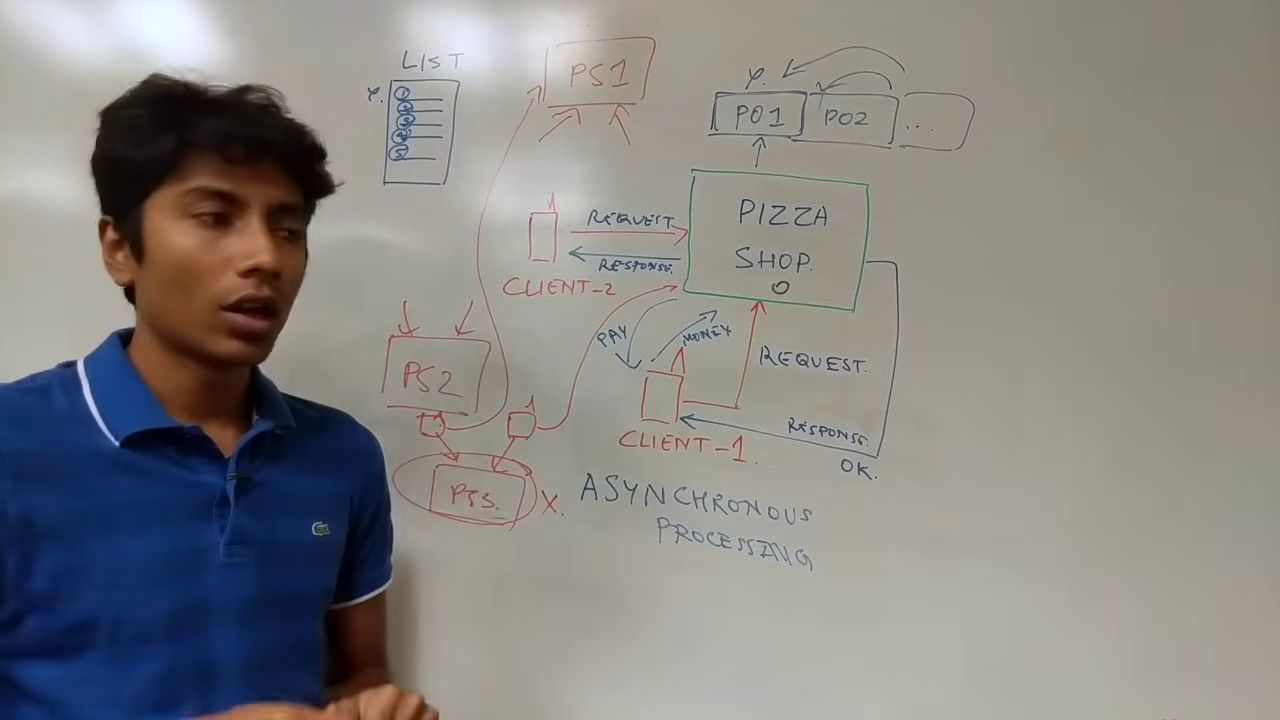 LIST
1
5
PS1
PO1
PO2
...
PIZZA
SHOP.
REQUEST
RESPONSE.
CLIENT-2
PAY
MONEY
REQUEST.
RESPONSE.
OK.
CLIENT-1.
PS2
PS3.
X.
ASYNCHRONOUS
PROCESSING